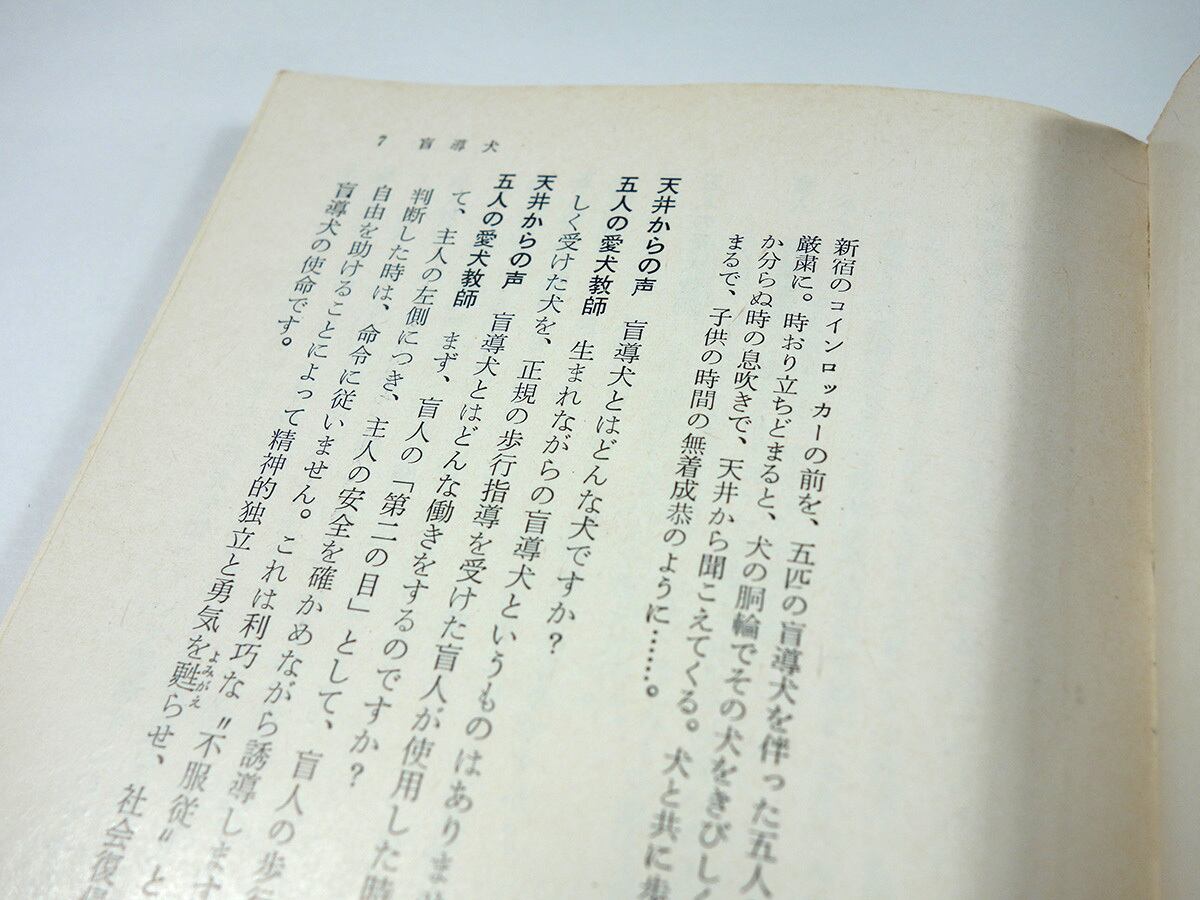 7 盲導犬
新宿のコインロッカーの前を、五匹の盲導犬を伴った五人
厳粛に。時おり立ちどまると、犬の胴輪でその犬をきびしく
か分らぬ時の息吹きで、天井から聞こえてくる。犬と共に歩
まるで、子供の時間の無着成恭のように……。
天井からの声 盲導犬とはどんな犬ですか？
五人の愛犬教師 生まれながらの盲導犬というものはありませ
しく受けた犬を、正規の歩行指導を受けた盲人が使用した時
天井からの声 盲導犬とはどんな働きをするのですか？
五人の愛犬教師 まず、盲人の「第二の目」として、盲人の歩行
て、主人の左側につき、主人の安全を確かめながら誘導します
判断した時は、命令に従いません。これは利巧な〝不服従〟と
自由を助けることによって精神的独立と勇気を甦らせ、社会復
よみがえ
盲導犬の使命です。